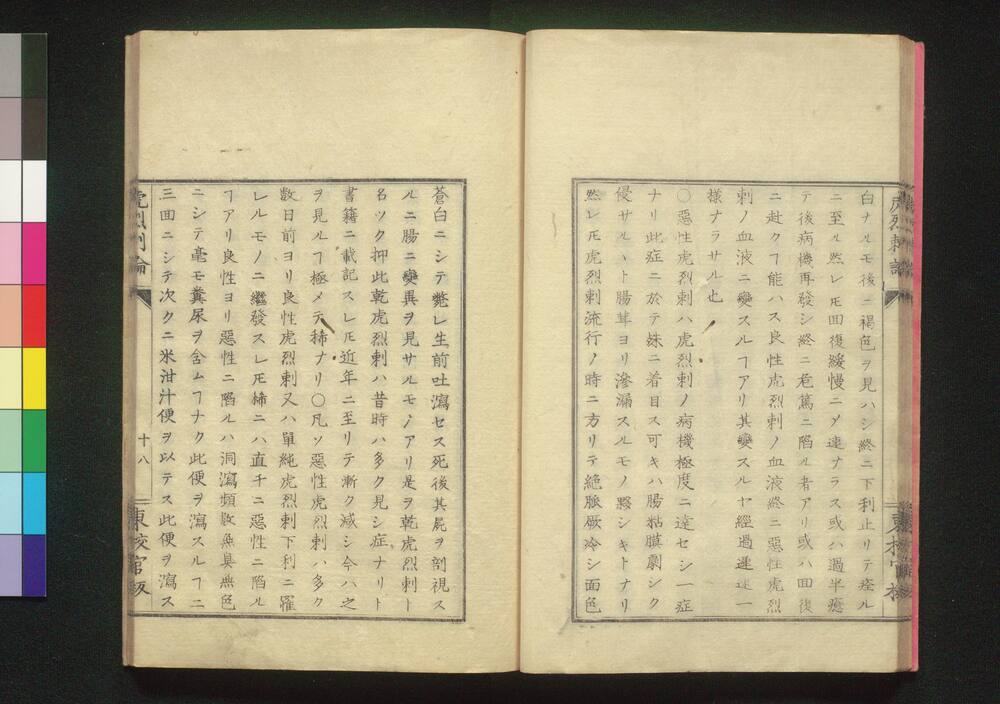 白ナルモ後ニ褐色ヲ見ハシ終ニ下利止リテ痊ル
ニ至ル然レ𪜈回復緩慢ニ〆速ナラス或ハ過半癒
テ後病機再發シ終ニ危篤ニ陷ル者アリ或ハ回復
ニ赴クヿ能ハス良性虎烈刺ノ血液終ニ惡性虎烈
刺ノ血液ニ變スルヿアリ其變スルヤ經過遲速一
樣ナラサル也
〇惡性虎烈刺ハ虎烈刺ノ病機極度ニ達セシ一症
ナリ此症ニ於テ殊ニ着目ス可キハ腸粘膜劇シク
侵サルヽト腸茸ヨリ滲漏スルモノ夥シキトナリ
然レ𪜈虎烈刺流行ノ時ニ方リテ絕脈厥冷シ面色
虎烈刺論
蒼白ニシテ斃レ生前吐瀉セス死後其屍ヲ剖視ス
ルニ腸ニ變異ヲ見サルモノアリ是ヲ乾虎烈刺ト
名ツク抑此乾虎烈刺ハ昔時ハ多ク見シ症ナリト
書籍ニ載記スレ𪜈近年ニ至リテ漸ク減シ今ハ之
ヲ見ルヿ極メテ稀ナリ〇凡ソ惡性虎烈刺ハ多ク
數日前ヨリ良性虎烈刺又ハ單純虎烈刺下利ニ罹
レルモノニ繼發スレ𪜈稀ニハ直チニ惡性ニ陷ル
ヿアリ良性ヨリ惡性ニ陷ルハ洞瀉頻數無臭無色
ニシテ毫モ糞尿ヲ含ムヿナク此便ヲ瀉スルヿニ
三回ニシテ次クニ米泔汁便ヲ以テス此便ヲ瀉ス
虎烈刺論
十八
東校官版